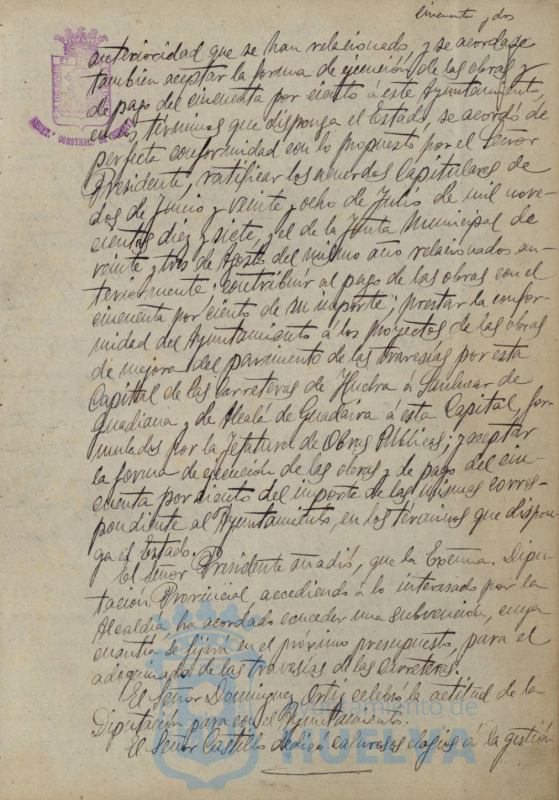 cincuenta y dos
anterioridad que se han relacionado, y se acordase
tambien aceptar la forma de ejecución de las obras y
de pago del cincuenta por ciento á este Ayuntamiento,
en los términos que disponga el Estado, se acordó de
perfecta conformidad con lo propuesto por el Señor
Presidente, ratificar los acuerdos Capitulares de
dos de Junio y veinte y ocho de Julio de mil nove-
cientos diez y siete, y el de la Junta Municipal de
veinte y tres de Agosto del mismo año relacionados an-
teriormente; contribuir al pago de las obras con el
cincuenta por ciento de su importe; prestar la confor-
midad del Ayuntamiento á los proyectos de las obras
de mejora del pavimento de las travesías por esta
Capital de las carreteras de Huelva á Sanlucar de
Guadiana y de Alcalá de Guadaira á esta Capital, for-
mulados por la Jefatura de Obras Públicas; y aceptar
la forma de ejecucion de las obras y de pago del cin-
cuenta por ciento del importe de las mismas corres-
pondiente al Ayuntamiento, en los términos que dispon-
ga el Estado.
El Señor Presidente añadió, que la Excma. Dipu-
tación Provincial accediendo á lo interesado por la
Alcaldía, ha acordado conceder una subvención, cuya
cuantía se fijará en el próximo presupuesto, para el
adoquinado de las travesías de las carreteras.
El Señor Dominguez Ortiz celebró la actitud de la
Diputación para con el Ayuntamiento.
El Señor Castillo dedicó calurosos elogios á la gestión
Ayuntamiento de
HUELVA